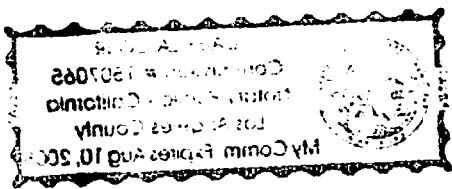 Commission # 1507065
Notary Public - California
Los Angeles County
My Comm. Expires Aug 10, 200